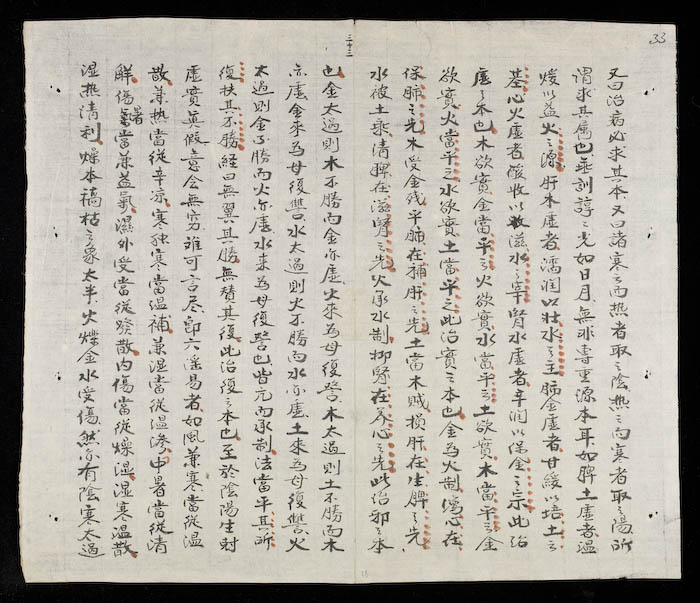 33
三十三
又曰治病必求其本又曰諸寒之而热者取之陰热之而寒者取之陽所
謂求其属也垂訓諄之光如日月無非專重源本耳如脾土虛者温
煖以益火之源肝木虛者濡润以壯水之主肺金虛者甘緩以培土之
基心火虛者酸收以滋水之宰腎水虛者辛润以保金之宗此治
虛之本也木欲實金當平之火欲實水當平之土欲實木當平之金
欲實火當平之水欲實土當平之此治實之本也金為火制瀉心在
保肺之先木受金残平肺在補肝之先土當木賊損肝在生脾之先
水被土乘清脾在滋腎之先火承水制抑腎在养心之先此治邪之本
也金太過則木不勝而金亦虛火來為母復讐木太過則土不勝而木
亦虛金來為母復讐水太過則火不勝而水亦虛土來為母復讐火
太過則金不勝而火亦虛水來為母復讐也皆亢而承制法當平其所
復扶其不勝經曰無翼其勝無賛其復此治復之本也至於陰陽生尅
虛實真假意会無穷难可言尽即六滛易者如風兼寒當從温
散兼热當從辛凉寒独寒當温補兼湿當從温滲中暑當從清
解傷暑當兼益氣濕外受當從發散内傷當從燥湿湿寒温散
湿热清利燥本稿枯之象太半火爍金水受傷然亦有陰寒太過